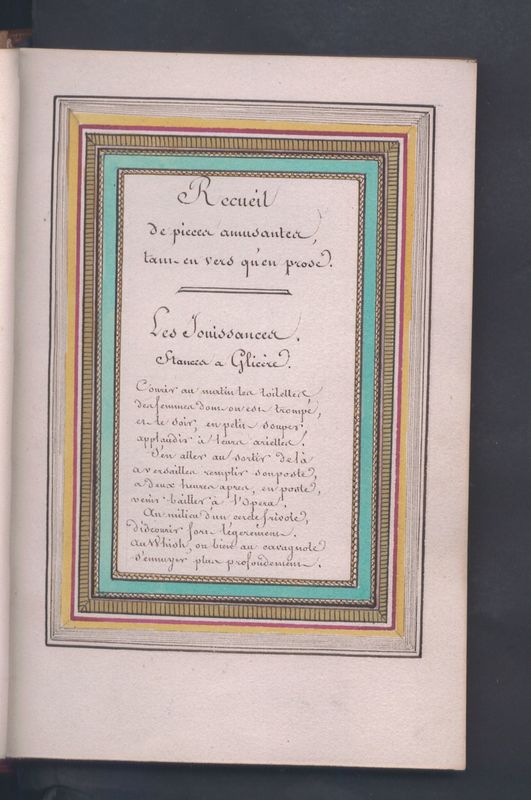 Recueil
de pieces amusantes,
tant en vers qu'en prose.
Les Jouissances.
Stances a Glicère.
Courir au matin les toilettes
des femmes dont on est trompé,
et le soir, en petit souper
applaudir à leurs ariettes.
S'en aller au sortir de là
a versailles remplir son poste,
a deux heures apres, en poste,
venir bailler à l'opera.
Au milieu d'un cercle frisoté,
discourir fort légerement.
au Whish, ou bien au cavagnole
s'ennuyer plus profondement.